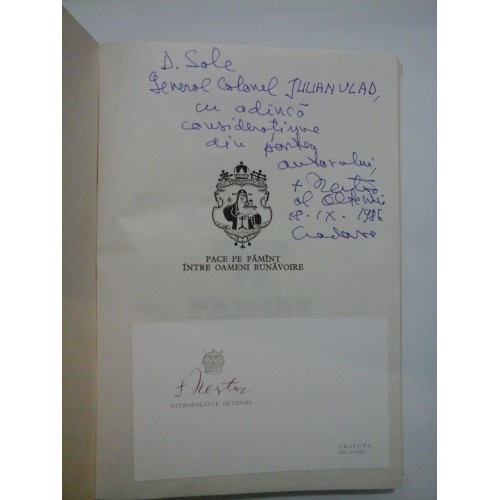 D. Sale
General Colonel JULIAN VLAD,
cu adîncă
considerațiune
din partea
autorului,
+ Nestor
al Olteniei
18.IX.1986
PACE PE PĂMÎNT
ÎNTRE OAMENI BUNĂVOIRE
+ Nestor
METROPOLITUL OLTENIEI
CRAIOVA